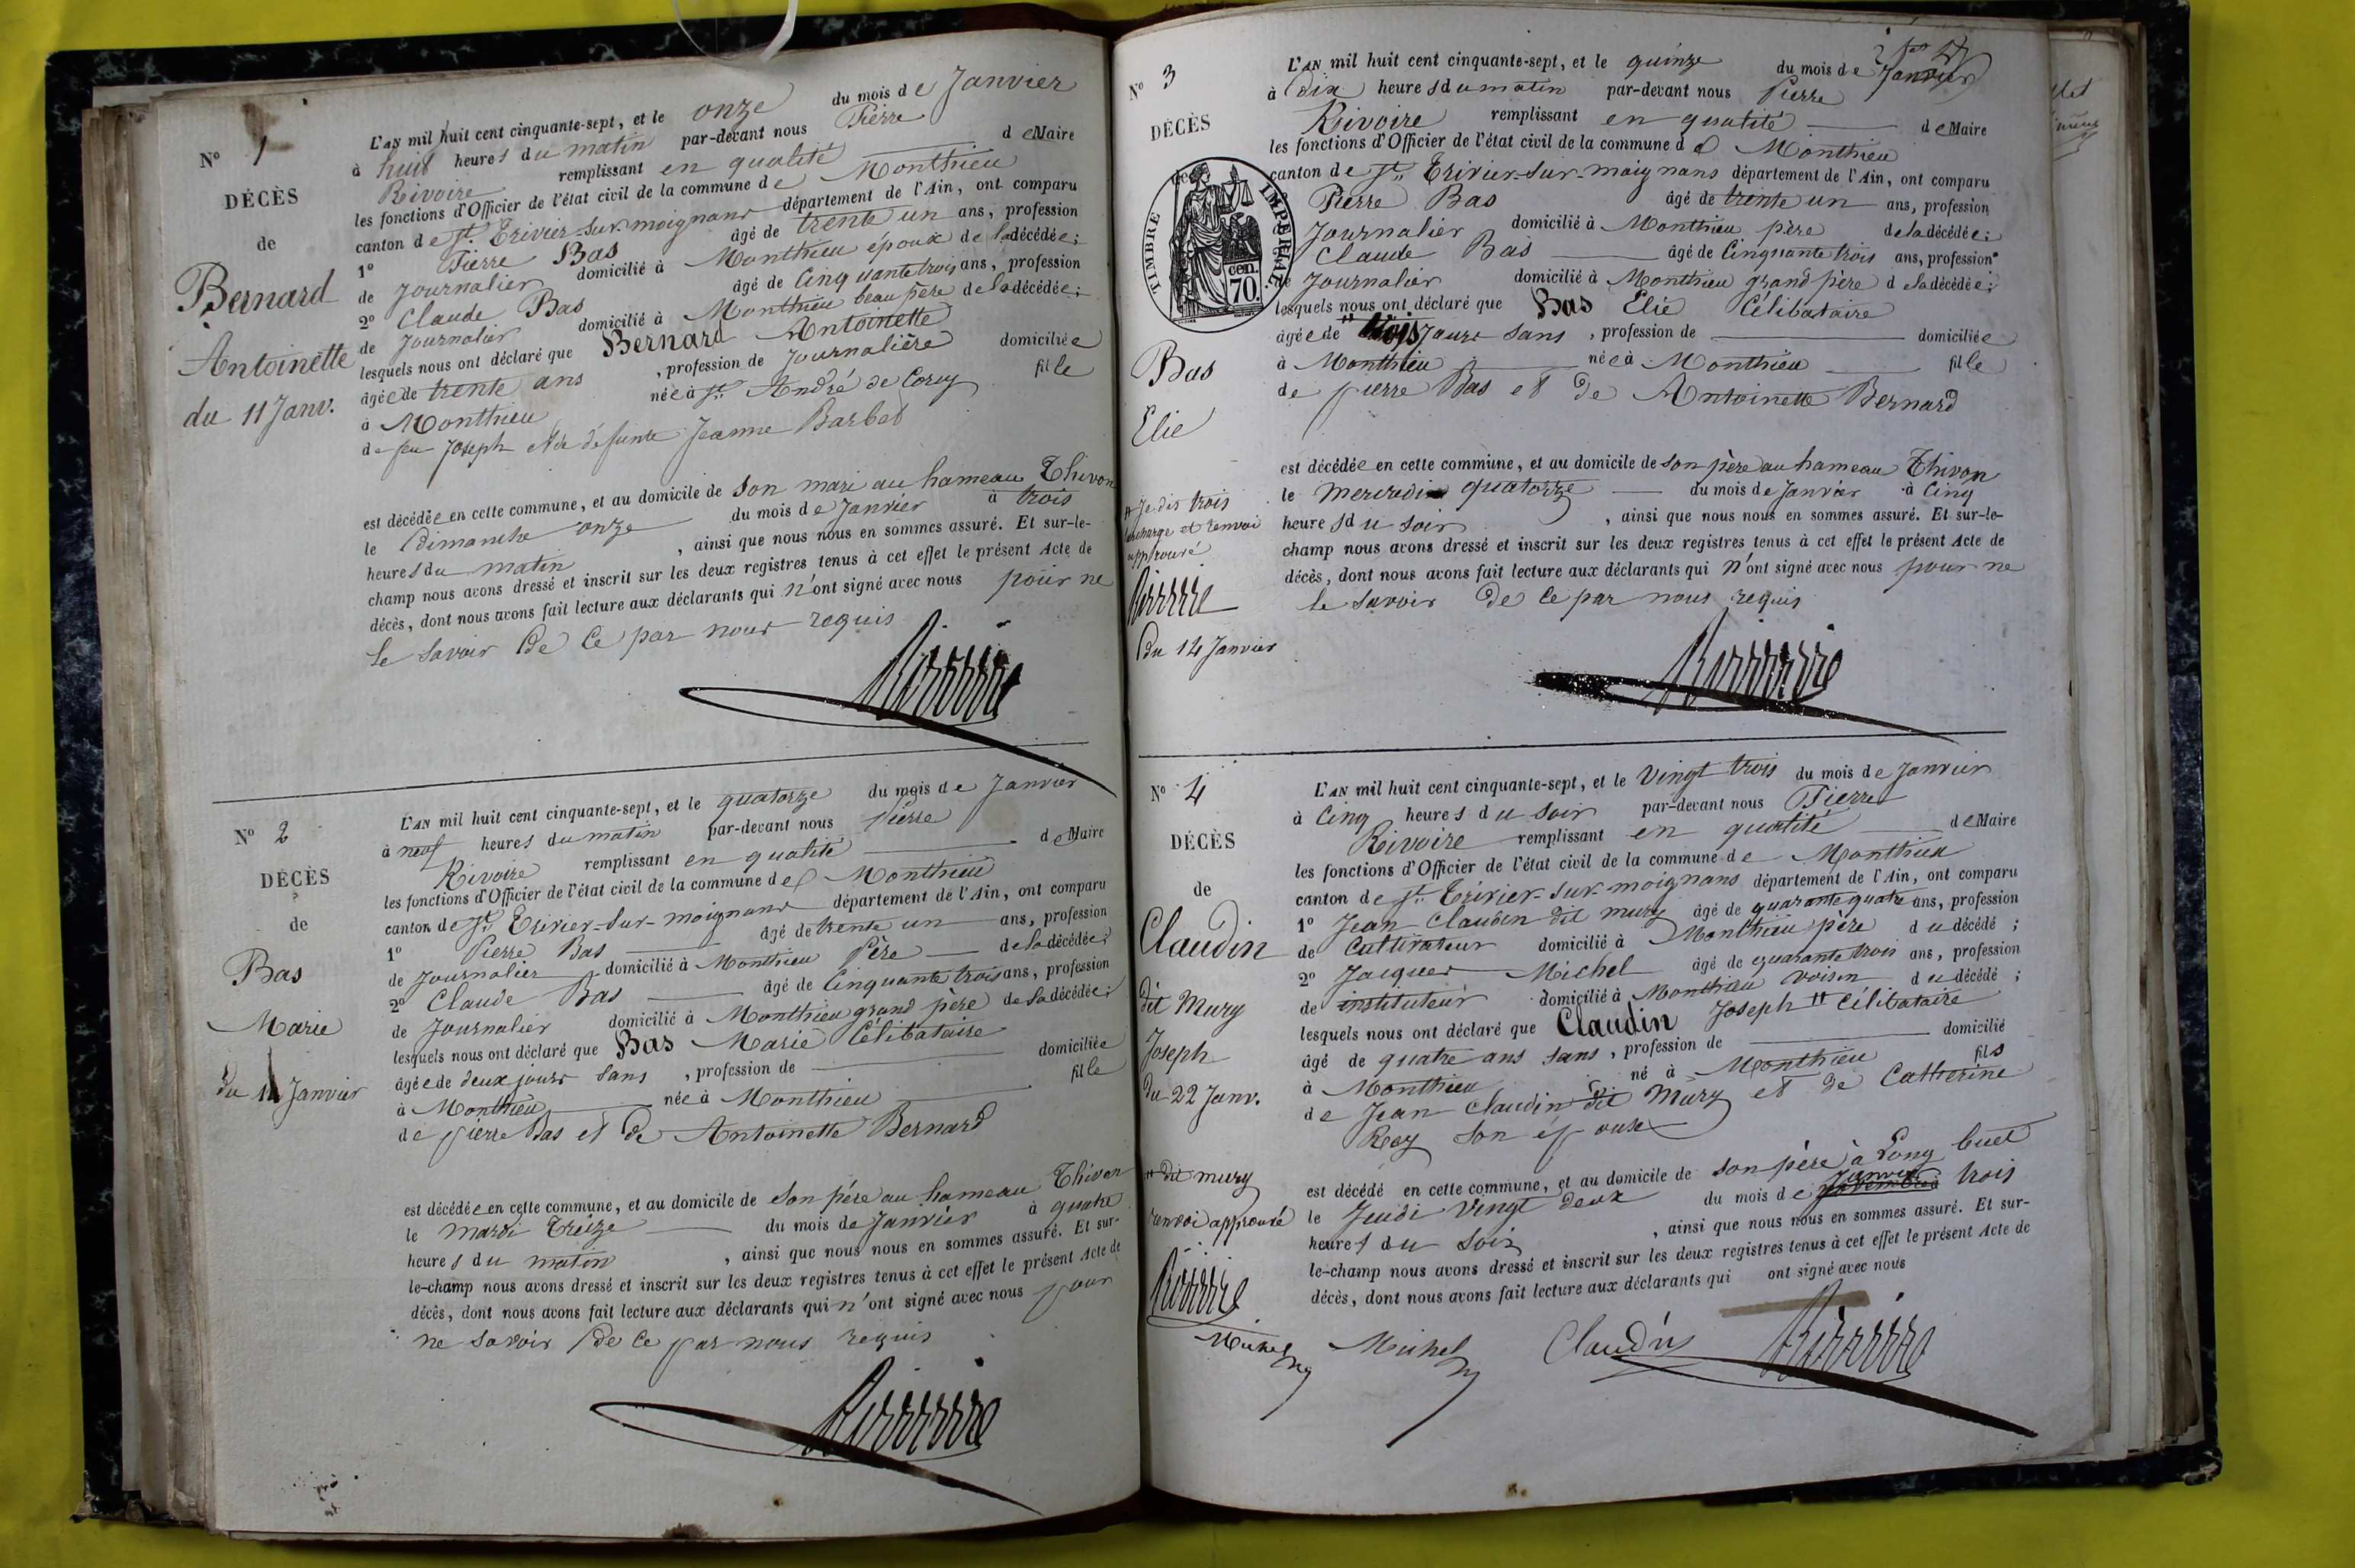 N° 1
DÉCÈS
de
Bernard
Antoinette
du 11 Janv.
L'AN mil huit cent cinquante-sept, et le onze du mois de Janvier
à huit heures du matin par-devant nous Pierre
Rivoire remplissant en qualité de Maire
les fonctions d'Officier de l'état civil de la commune de Monthieu
canton de St. Trivier-sur-moignans département de l'Ain, ont comparu
1° Pierre Bas âgé de trente un ans, profession
de Journalier domicilié à Monthieu époux de la décédée;
2° Claude Bas âgé de Cinquante trois ans, profession
de Journalier domicilié à Monthieu beau père de la décédée;
lesquels nous ont déclaré que Bernard Antoinette
âgée de trente ans, profession de Journalière domiciliée
à Monthieu née à St. André de Corcy fille
de feu Joseph et de défunte Jeanne Barbet
est décédée en cette commune, et au domicile de son mari au hameau Thivon
le dimanche onze du mois de Janvier à trois
heures du matin, ainsi que nous nous en sommes assuré. Et sur-le-
champ nous avons dressé et inscrit sur les deux registres tenus à cet effet le présent Acte de
décès, dont nous avons fait lecture aux déclarants qui n'ont signé avec nous pour ne
le savoir de ce par nous requis
Rivoire
N° 2
DÉCÈS
de
Bas
Marie
du 14 Janvier
L'AN mil huit cent cinquante-sept, et le quatorze du mois de Janvier
à neuf heures du matin par-devant nous Pierre
Rivoire remplissant en qualité de Maire
les fonctions d'Officier de l'état civil de la commune de Monthieu
canton de St. Trivier-sur-moignans département de l'Ain, ont comparu
1° Pierre Bas âgé de trente un ans, profession
de Journalier domicilié à Monthieu Père de la décédée;
2° Claude Bas âgé de Cinquante trois ans, profession
de Journalier domicilié à Monthieu grand père de la décédée;
lesquels nous ont déclaré que Bas Marie Célibataire
âgée de deux jours sans, profession de domiciliée
à Monthieu née à Monthieu fille
de pierre Bas et de Antoinette Bernard
est décédée en cette commune, et au domicile de son père au hameau Thivon
le mardi treize du mois de Janvier à quatre
heures du matin, ainsi que nous nous en sommes assuré. Et sur-
le-champ nous avons dressé et inscrit sur les deux registres tenus à cet effet le présent Acte de
décès, dont nous avons fait lecture aux déclarants qui n'ont signé avec nous pour
ne savoir de ce par nous requis
Rivoire
N° 3
DÉCÈS
de
TIMBRE IMPÉRIAL
70. cen.
Bas
Elie
# Je dis trois
surcharge et renvoi
approuvé
Rivoire
du 14 Janvier
L'AN mil huit cent cinquante-sept, et le quinze du mois de Janvier
à dix heures du matin par-devant nous Pierre
Rivoire remplissant en qualité de Maire
les fonctions d'Officier de l'état civil de la commune de Monthieu
canton de St. Trivier-sur-moignans département de l'Ain, ont comparu
Pierre Bas âgé de trente un ans, profession
Journalier domicilié à Monthieu père de la décédée;
Claude Bas âgé de Cinquante trois ans, profession
de Journalier domicilié à Monthieu grand père de la décédée;
lesquels nous ont déclaré que Bas Elie Célibataire
âgée de # trois Jours sans, profession de domiciliée
à Monthieu née à Monthieu fille
de pierre Bas et de Antoinette Bernard
est décédée en cette commune, et au domicile de son père au hameau Thivon
le mercredi quatorze du mois de Janvier à Cinq
heures du soir, ainsi que nous nous en sommes assuré. Et sur-le-
champ nous avons dressé et inscrit sur les deux registres tenus à cet effet le présent Acte de
décès, dont nous avons fait lecture aux déclarants qui n'ont signé avec nous pour ne
le savoir de ce par nous requis
Rivoire
N° 4
DÉCÈS
de
Claudin
dit Mury
Joseph
du 22 Janv.
# dit mury
renvoi approuvé
Rivoire
Michel
L'AN mil huit cent cinquante-sept, et le Vingt trois du mois de Janvier
à Cinq heures du soir par-devant nous Pierre
Rivoire remplissant en qualité de Maire
les fonctions d'Officier de l'état civil de la commune de Monthieu
canton de St. Trivier-sur-moignans département de l'Ain, ont comparu
1° Jean Claudin dit mury âgé de quarante quatre ans, profession
de Cultivateur domicilié à Monthieu père du décédé;
2° Jacques Michel âgé de quarante trois ans, profession
de instituteur domicilié à Monthieu voisin du décédé;
lesquels nous ont déclaré que Claudin Joseph # Célibataire
âgé de quatre ans sans, profession de domicilié
à Monthieu né à Monthieu fils
de Jean Claudin dit Mury et de Catherine
Rey son épouse
est décédé en cette commune, et au domicile de son père à Long buet
le Jeudi Vingt deux du mois de Janvier trois
heures du soir, ainsi que nous nous en sommes assuré. Et sur-
le-champ nous avons dressé et inscrit sur les deux registres tenus à cet effet le présent Acte de
décès, dont nous avons fait lecture aux déclarants qui ont signé avec nous
Michel Claudin Rivoire